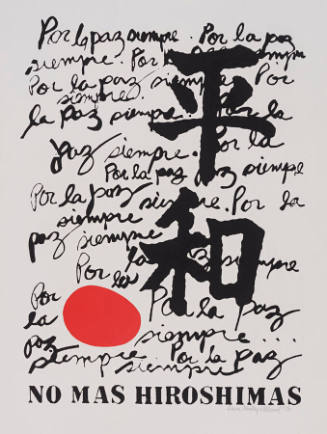 Por la paz siempre. Por la paz
siempre. Por la paz siempre.
Por la paz siempre. Por
siempre.
la paz siempre. Por la
paz siempre. Por la paz
Por la paz paz siempre
Por la paz siempre. Por la
siempre
paz siempre
Por la siempre
Por la Por la paz
la siempre ...
paz
siempre. Por la paz
平和
NO MAS HIROSHIMAS